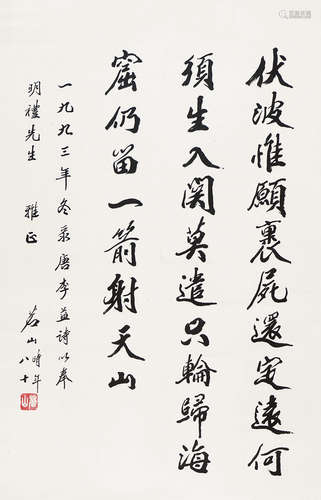 伏波惟願裹屍還定遠何
須生入関莫遣只輪歸海
窟仍留一箭射天山
一九九三年冬录唐李益詩以奉
明禮先生 雅正
茗山時年
八十